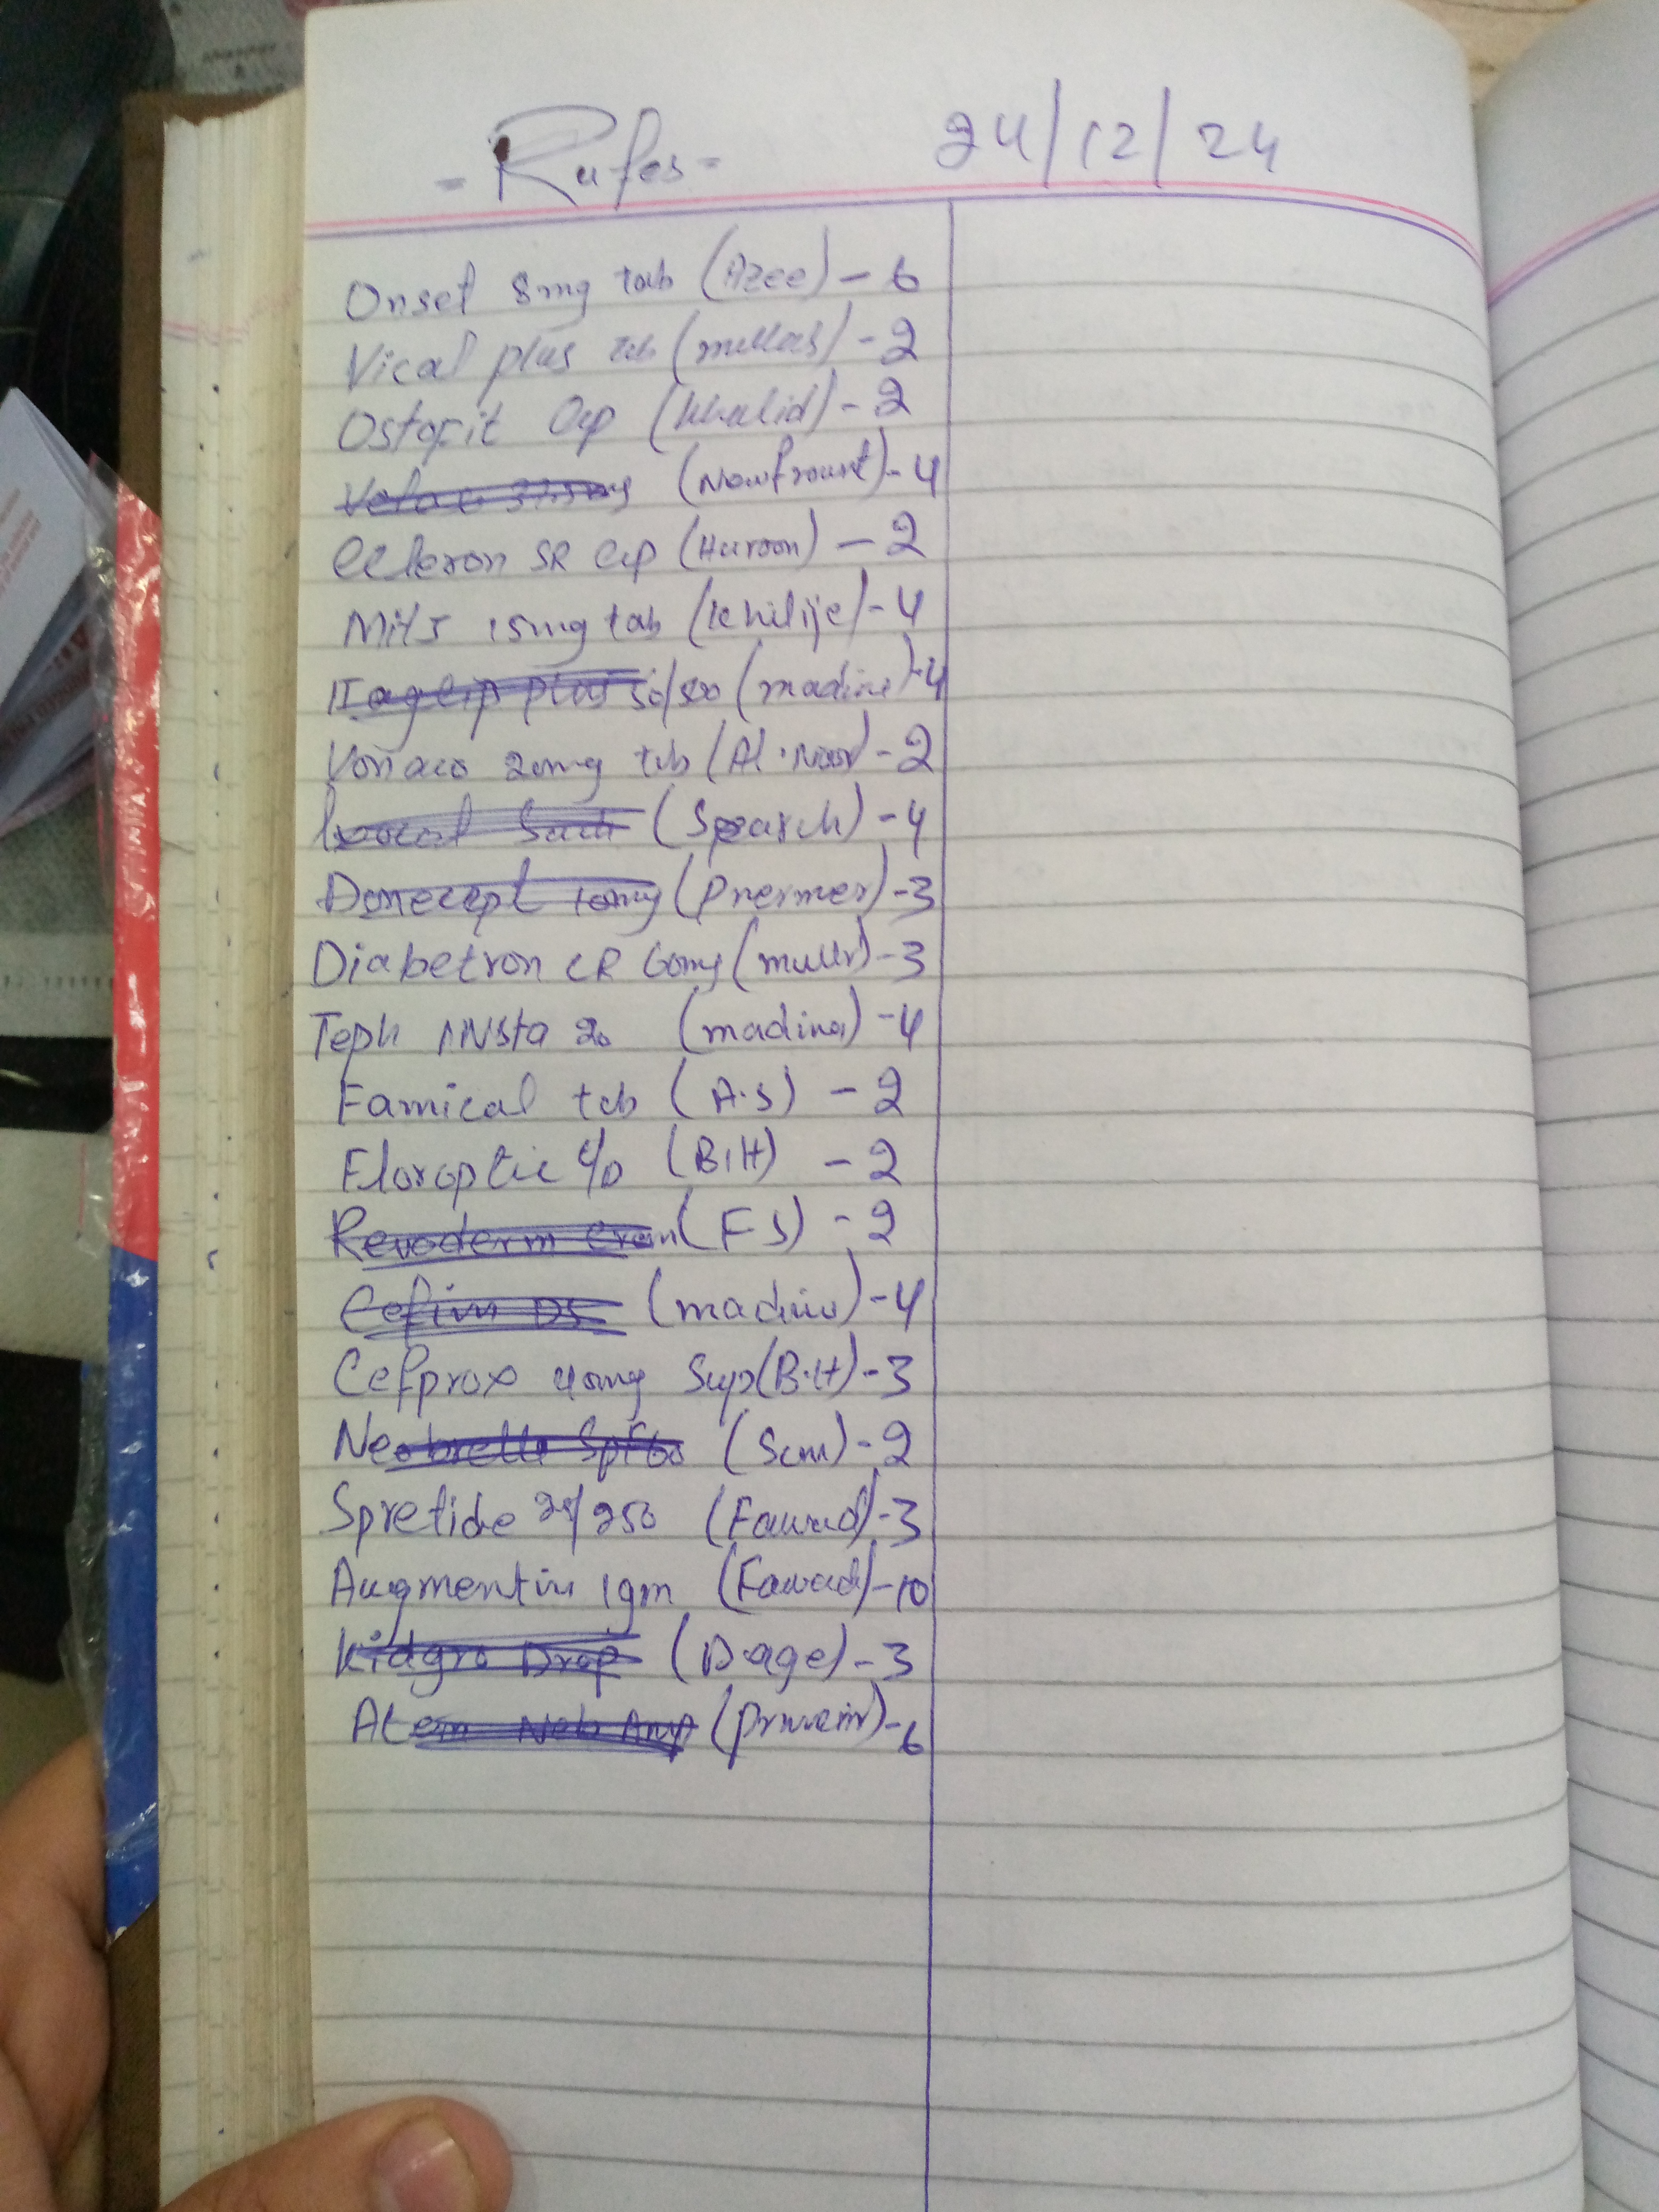 - Rufes - 24/12/24
Onset 8mg tab (Azee) - 6
Vical plus tab - 2
Ostofit Cap (Khalid) - 2
(Newfrount) - 4
SR Cap (Haroon) - 2
15mg tab - 4
plus 50/500 (madina) - 4
20mg tab (Al-Noor) - 2
Sach (Search) - 4
Donecept 10mg - 3
Diabetron CR 60mg - 3
Teph INsta 20 (madina) - 4
Famical tab (A.S) - 2
Floroptic (B.H) - 2
Revoderm (F S) - 2
DS (madina) - 4
Cefprox 40mg Sup (B.H) - 3
SPF60 - 2
Spretide 25/250 (Fawad) - 3
Augmentin 1gm (Fawad) - 10
Kidgro Drop (D.age) - 3
Atem Neb Amp - 6